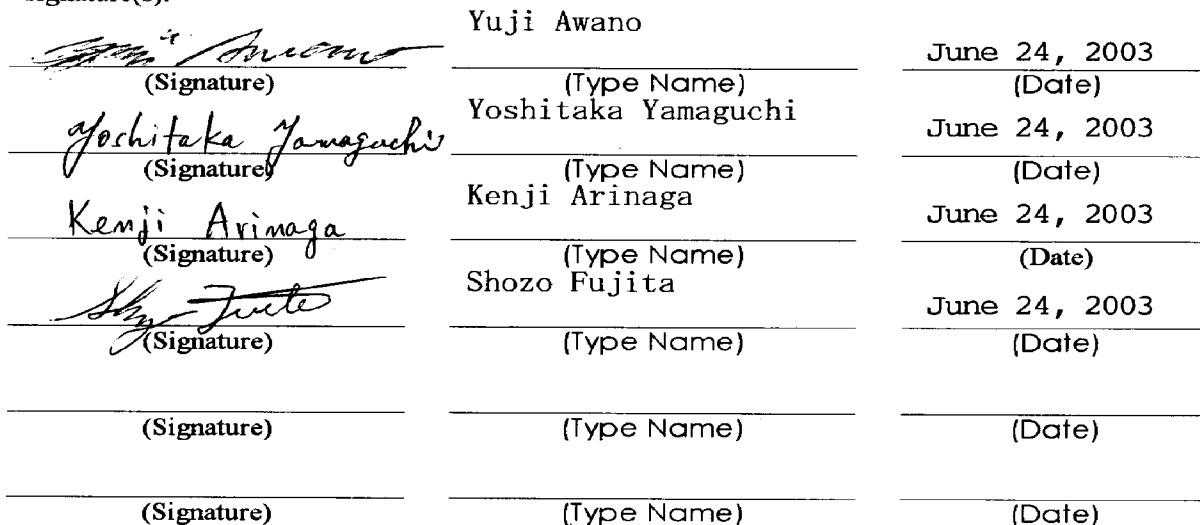 signature(s).
Yuji Awano
June 24, 2003
(Signature) (Type Name) (Date)
Yoshitaka Yamaguchi Yoshitaka Yamaguchi June 24, 2003
(Signature) (Type Name) (Date)
Kenji Arinaga Kenji Arinaga June 24, 2003
(Signature) (Type Name) (Date)
Shozo Fujita June 24, 2003
(Signature) (Type Name) (Date)
(Signature) (Type Name) (Date)
(Signature) (Type Name) (Date)